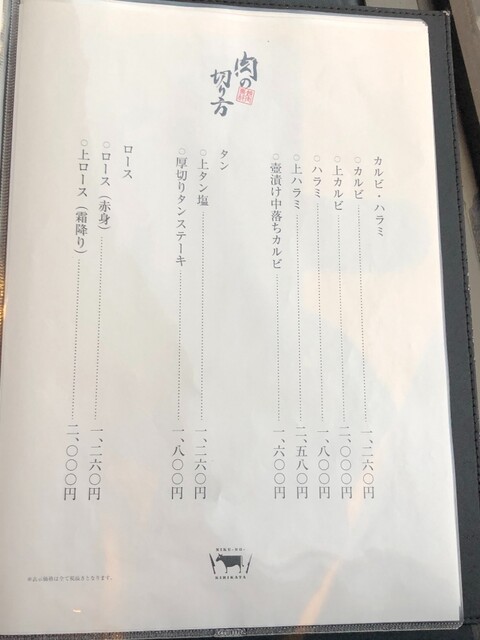 肉の
切り方
カルビ・ハラミ
○カルビ……一、二六〇円
○上カルビ……二、〇〇〇円
○ハラミ……一、八〇〇円
○上ハラミ……二、五八〇円
○壺漬け中落ちカルビ……一、六〇〇円
タン
○上タン塩……一、二六〇円
○厚切りタンステーキ……一、八〇〇円
ロース
○ロース（赤身）……一、二六〇円
○上ロース（霜降り）……二、〇〇〇円
NIKU-NO-
KIRIKATA
※表示価格は全て税抜きとなります。